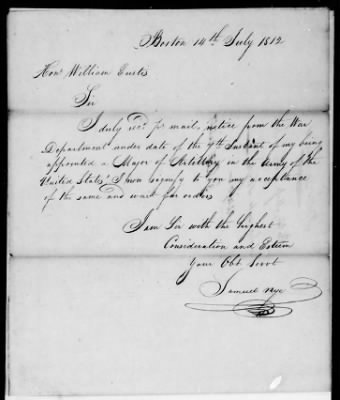 Boston 14th July 1812
Hon. William Eustis
Sir
I duly recd. pr mail, notice from the War
Department under date of the 7th Instant of my being
appointed a Major of Artillery in the Army of the
United States. I now signify to you my acceptance
of the same and wait for orders
I am Sir with the highest
Consideration and Esteem
Your Obt Servt
Samuel Nye